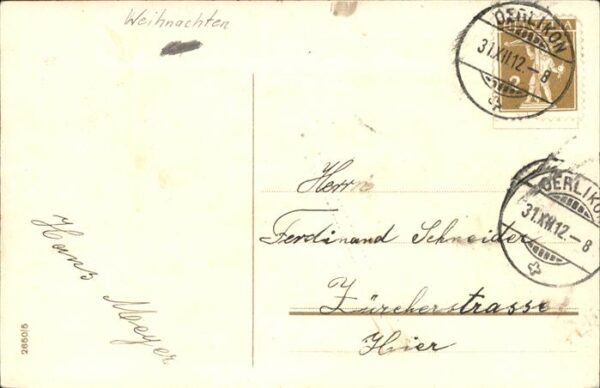 Weihnachten
OERLIKON
31.XII.12.-8
2
OERLIKON
31.XII.12.-8
Herrn
Ferdinand Schneider
Zürcherstrasse
Hier
Hans Meyer
2650/5